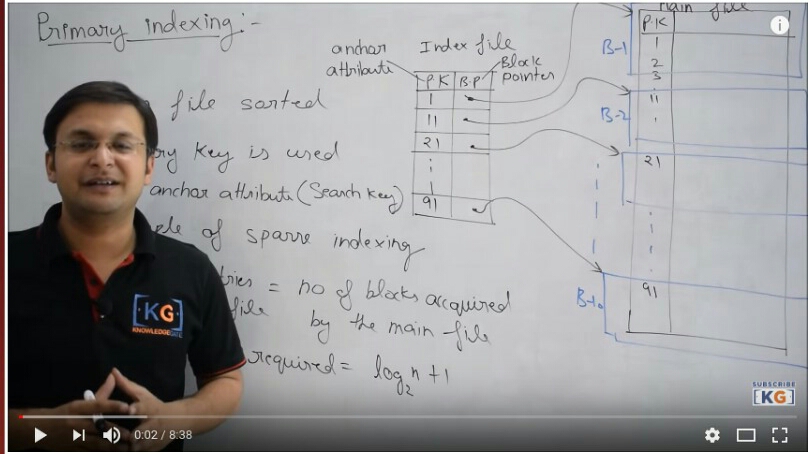 Primary indexing:-
file sorted
ry key is used
anchar attribute (Search key)
ple of sparse indexing
tries = no of blocks acquired
file by the main file
required = log₂n + 1
anchar
attribute
Index file
Block
pointer
P.K B.P
1
11
21
91
main file
P.K
B-1
1
2
3
B-2
11
21
B-10
91
[KG]
KNOWLEDGE
SUBSCRIBE
[KG]
0:02 / 8:38